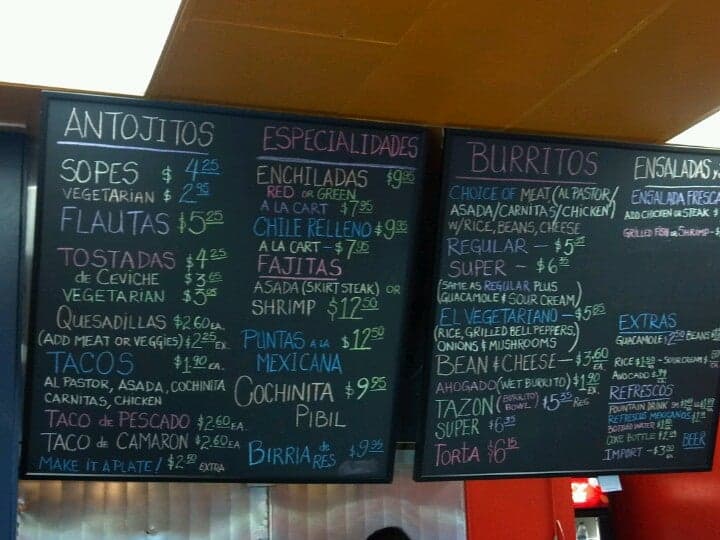 ANTOJITOS
SOPES $ 4.25
VEGETARIAN $ 2.95
FLAUTAS $5.25
TOSTADAS $4.25
de CEVICHE $3.65
VEGETARIAN $3.95
QUESADILLAS $2.60 EA.
(ADD MEAT OR VEGGIES) $2.25 EX.
TACOS $1.90 EA.
AL PASTOR, ASADA, COCHINITA
CARNITAS, CHICKEN
TACO de PESCADO $2.60 EA.
TACO de CAMARON $2.60 EA
MAKE IT A PLATE! $2.50 EXTRA
ESPECIALIDADES
ENCHILADAS $9.95
RED OR GREEN
A LA CART $7.95
CHILE RELLENO $9.95
A LA CART - $7.95
FAJITAS
ASADA (SKIRT STEAK) OR
SHRIMP $12.50
PUNTAS A LA $12.50
MEXICANA
COCHINITA $9.95
PIBIL
BIRRIA de RES $9.95
BURRITOS
CHOICE OF MEAT (AL PASTOR/
ASADA/CARNITAS/CHICKEN)
W/RICE, BEANS, CHEESE
REGULAR - $5.
SUPER - $6.
(SAME AS REGULAR PLUS
GUACAMOLE & SOUR CREAM)
EL VEGETARIANO - $5.65
(RICE, GRILLED BELL PEPPERS,
ONIONS & MUSHROOMS)
BEAN & CHEESE - $3.60 EA
AHOGADO (WET BURRITO) $1.90 EX.
TAZON (BURRITO BOWL) $5.35 REG
SUPER $6.35
TORTA $6.15
ENSALADAS y
ENSALADA FRESCA
ADD CHICKEN OR STEAK
GRILLED FISH OR SHRIMP - $
EXTRAS
GUACAMOLE $2.50 BEANS
RICE SOUR CREAM
AVOCADO
REFRESCOS
FOUNTAIN DRINK
REFRESCOS MEXICANOS
BOTTLED WATER
COKE BOTTLE BEER
IMPORT - $3.